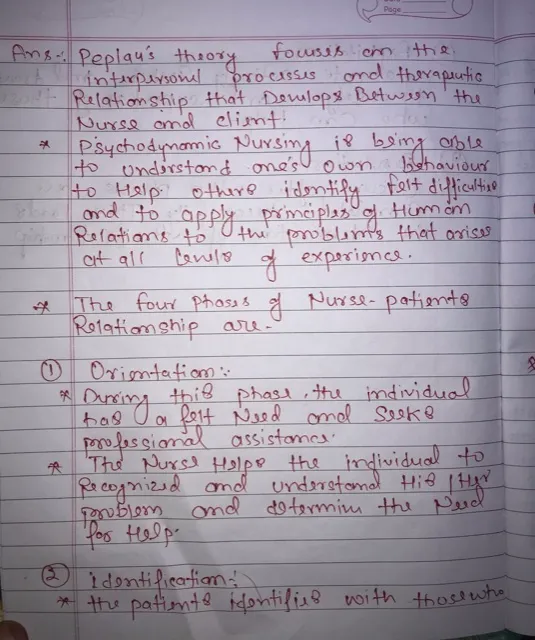 Page
Ans:- Peplau's theory focuses on the
interpersonal processes and therapeutic
Relationship that Develops Between the
Nurse and client.
* Psychodynamic Nursing is being able
to understand one's own behaviour
to Help others identify felt difficulties
and to apply principles of Human
Relations to the problems that arises
at all levels of experience.
* The four Phases of Nurse-patients
Relationship are-
① Orientation:-
* During this phase, the individual
has a felt Need and Seeks
professional assistance.
* The Nurse Helps the individual to
Recognized and understand His/Her
problem and determine the Need
for Help.
② identification:-
* the patients identifies with those who